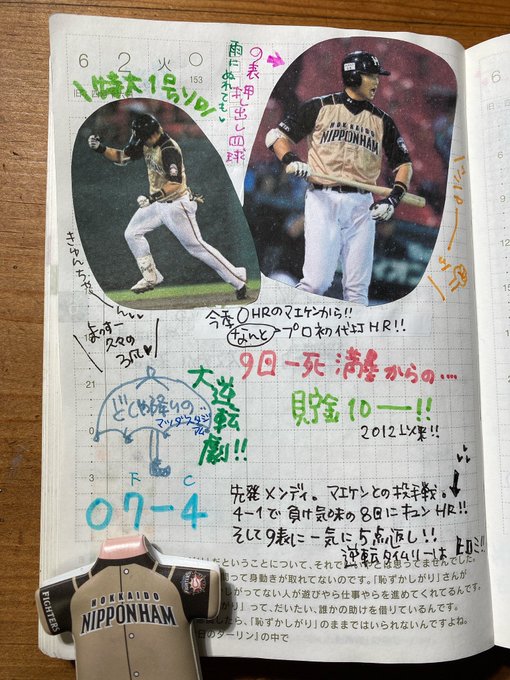 6 2 火
153
特大1号ソロ
雨にぬれても
9表押し出し四球
HOKKAIDO
NIPPONHAM
HOKKAIDO
NIPPONHAM
きゅんちゃん
まっすー
久々の
今季0HRのマエケンから!!
なんと プロ初代打HR!!
9回一死満塁からの…
大逆転劇!!
貯金10ー!!
2012以来!!
どしゃ降りの
マツダスタジアム
21
3
F C
07-4
先発メンディ。マエケンとの投手戦。
4-1で負け気味の8回にキュンHR!!
そして9表に一気に5点返し!!
逆転タイムリーは ヒロミ!!
だということについて、それで
とは思ってませんでした。
って身動きが取れてないのです。「恥ずかしがり」さんが
しがってない人が遊びやら仕事やらを進めてくれてるんです。
がり」って、だいたい、誰かの助けを借りているんです。
したら、「恥ずかしがり」のままではいられないんですよね。
日のダーリン』の中で
FIGHTERS
HOKKAIDO
NIPPONHAM
6